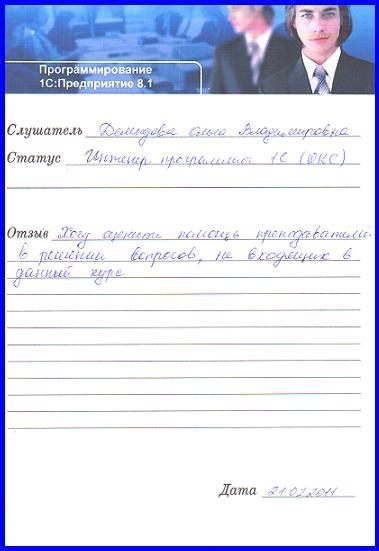 Программирование
1С:Предприятие 8.1
Слушатель Демидова Ольга Владимировна
Статус Инженер программист 1С (ОКС)
Отзыв Хочу оценить помощь преподавателей
в решении вопросов, не входящих в
данный курс
Дата 21.02.2011